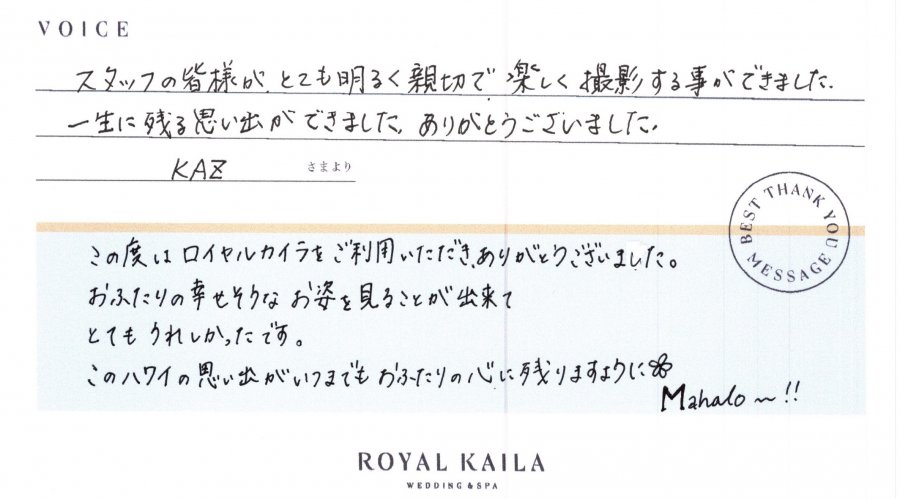 VOICE
スタッフの皆様が、とても明るく親切で楽しく撮影する事ができました。
一生に残る思い出ができました。ありがとうございました。
KAZ さまより
BEST THANK YOU MESSAGE
この度はロイヤルカイラをご利用いただき、ありがとうございました。
おふたりの幸せそうなお姿を見ることが出来て
とてもうれしかったです。
このハワイの思い出がいつまでもおふたりの心に残りますように
Mahalo〜!!
ROYAL KAILA
WEDDING & SPA